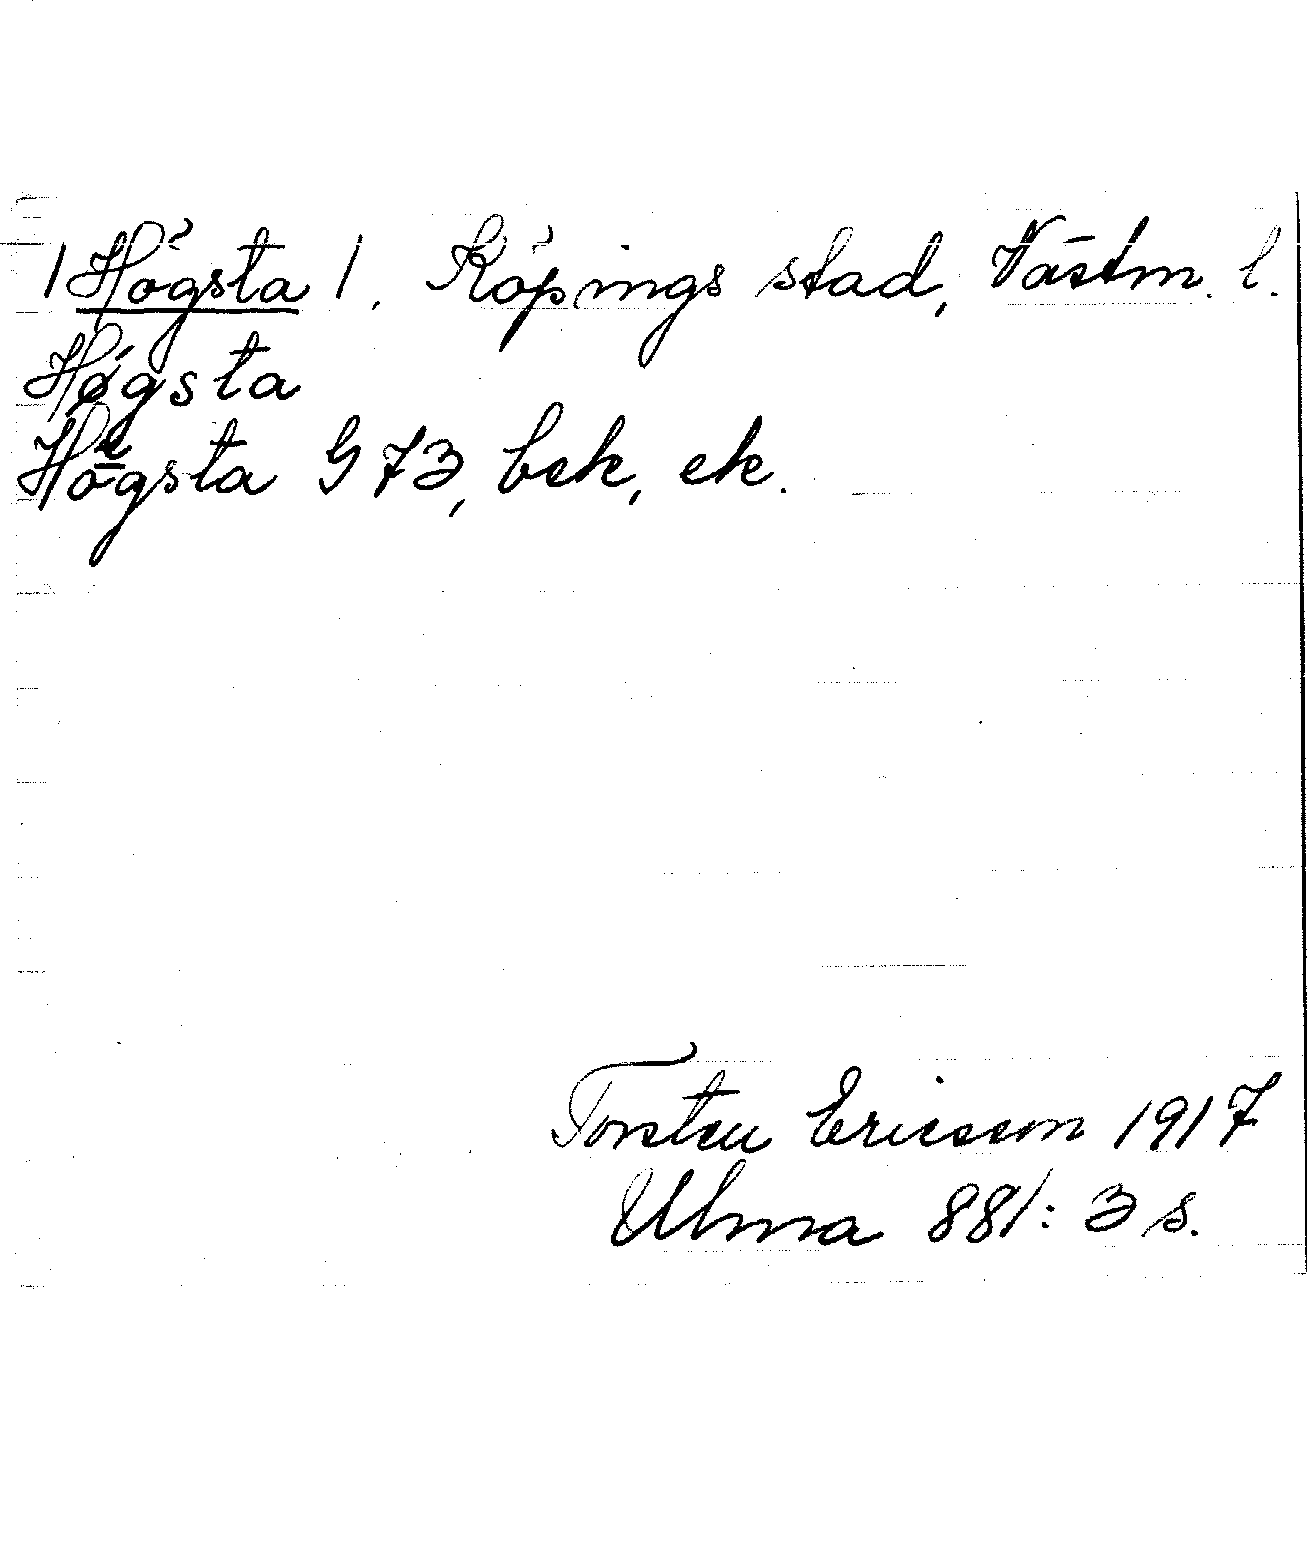 /Högsta/. Köpings stad, Västm. l.
Høgsta
Högsta G 73, bek, ek.
Torsten Ericsson 1917
Ulma 881: 3 s.